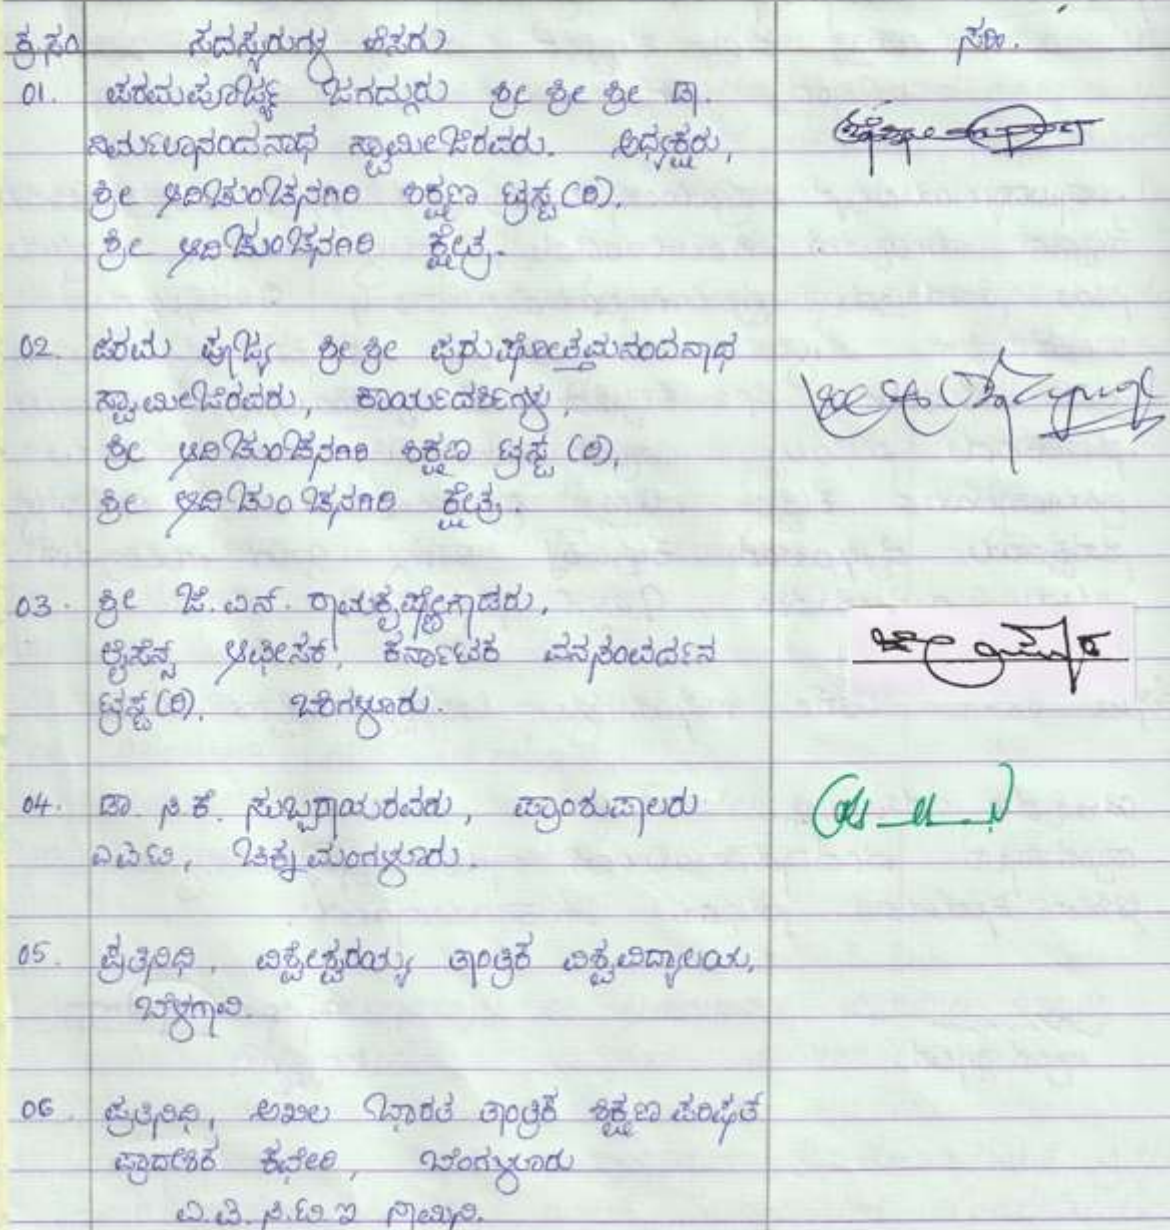 ಕ್ರ.ಸಂ ಸದಸ್ಯರುಗಳ ಹೆಸರು ಸಹಿ.
01. ಪರಮಪೂಜ್ಯ ಜಗದ್ಗುರು ಶ್ರೀ ಶ್ರೀ ಶ್ರೀ ಡಾ.
ನಿರ್ಮಲಾನಂದನಾಥ ಸ್ವಾಮೀಜಿರವರು. ಅಧ್ಯಕ್ಷರು,
ಶ್ರೀ ಆದಿಚುಂಚನಗಿರಿ ಶಿಕ್ಷಣ ಟ್ರಸ್ಟ (ರಿ).
ಶ್ರೀ ಆದಿಚುಂಚನಗಿರಿ ಕ್ಷೇತ್ರ.
02. ಪರಮ ಪೂಜ್ಯ ಶ್ರೀ ಶ್ರೀ ಪುರುಷೋತ್ತಮನಂದನಾಥ
ಸ್ವಾಮೀಜಿರವರು, ಕಾರ್ಯದರ್ಶಿಗಳು,
ಶ್ರೀ ಆದಿಚುಂಚನಗಿರಿ ಶಿಕ್ಷಣ ಟ್ರಸ್ಟ (ರಿ),
ಶ್ರೀ ಆದಿಚುಂಚನಗಿರಿ ಕ್ಷೇತ್ರ.
03. ಶ್ರೀ ಜೆ.ಎನ್. ರಾಮಕೃಷ್ಣೇಗೌಡರು,
ಲೈಸೆನ್ಸ್ ಆಫೀಸರ್, ಕರ್ನಾಟಕ ವನ್ಯಸಂವರ್ದನ
ಟ್ರಸ್ಟ (ರಿ). ಬೆಂಗಳೂರು.
04. ಡಾ. ಸಿ.ಕೆ. ಸುಬ್ಬರಾಯರವರು, ಪ್ರಾಂಶುಪಾಲರು
ಎಐಟಿ, ಚಿಕ್ಕಮಂಗಳೂರು.
05. ಪ್ರತಿನಿಧಿ, ವಿಶ್ವೇಶ್ವರಯ್ಯ ತಾಂತ್ರಿಕ ವಿಶ್ವವಿದ್ಯಾಲಯ,
ಬೆಳಗಾವಿ.
06. ಪ್ರತಿನಿಧಿ, ಅಖಿಲ ಭಾರತ ತಾಂತ್ರಿಕ ಶಿಕ್ಷಣ ಪರಿಷತ
ಪ್ರಾದೇಶಿಕ ಕಛೇರಿ, ಬೆಂಗಳೂರು
ಎ.ಐ.ಸಿ.ಟಿ.ಇ ನಾಮಿನಿ.